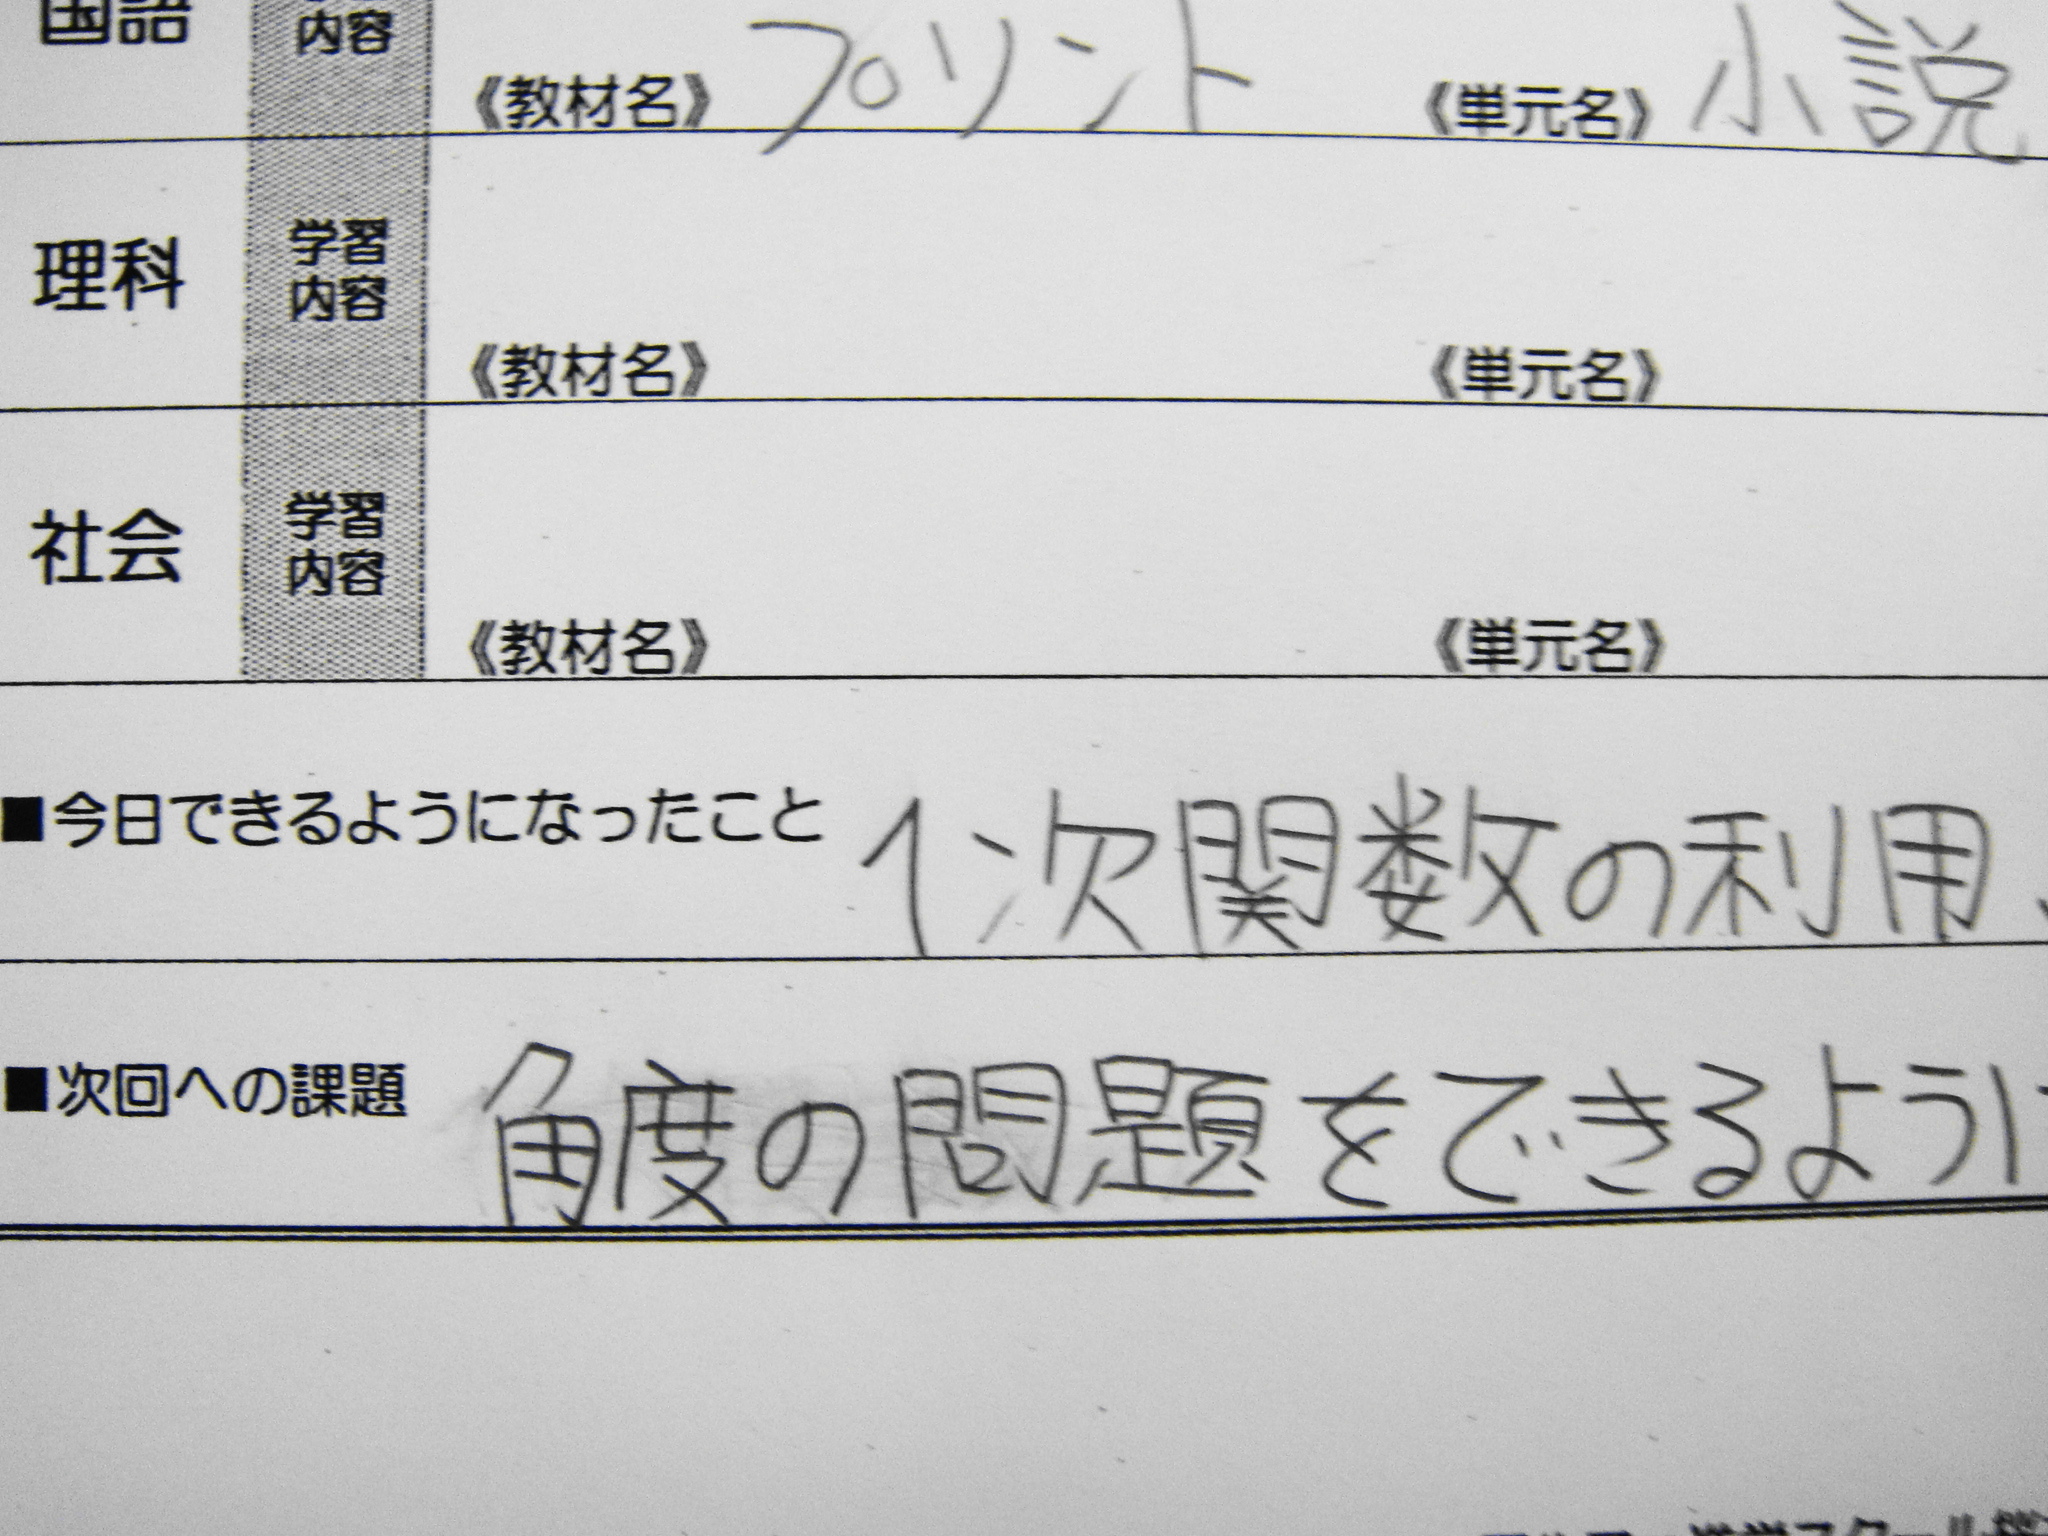 国語 学習
内容
《教材名》 プリント 《単元名》 小説
理科 学習
内容
《教材名》 《単元名》
社会 学習
内容
《教材名》 《単元名》
■今日できるようになったこと 1次関数の利用、
■次回への課題 角度の問題をできるように